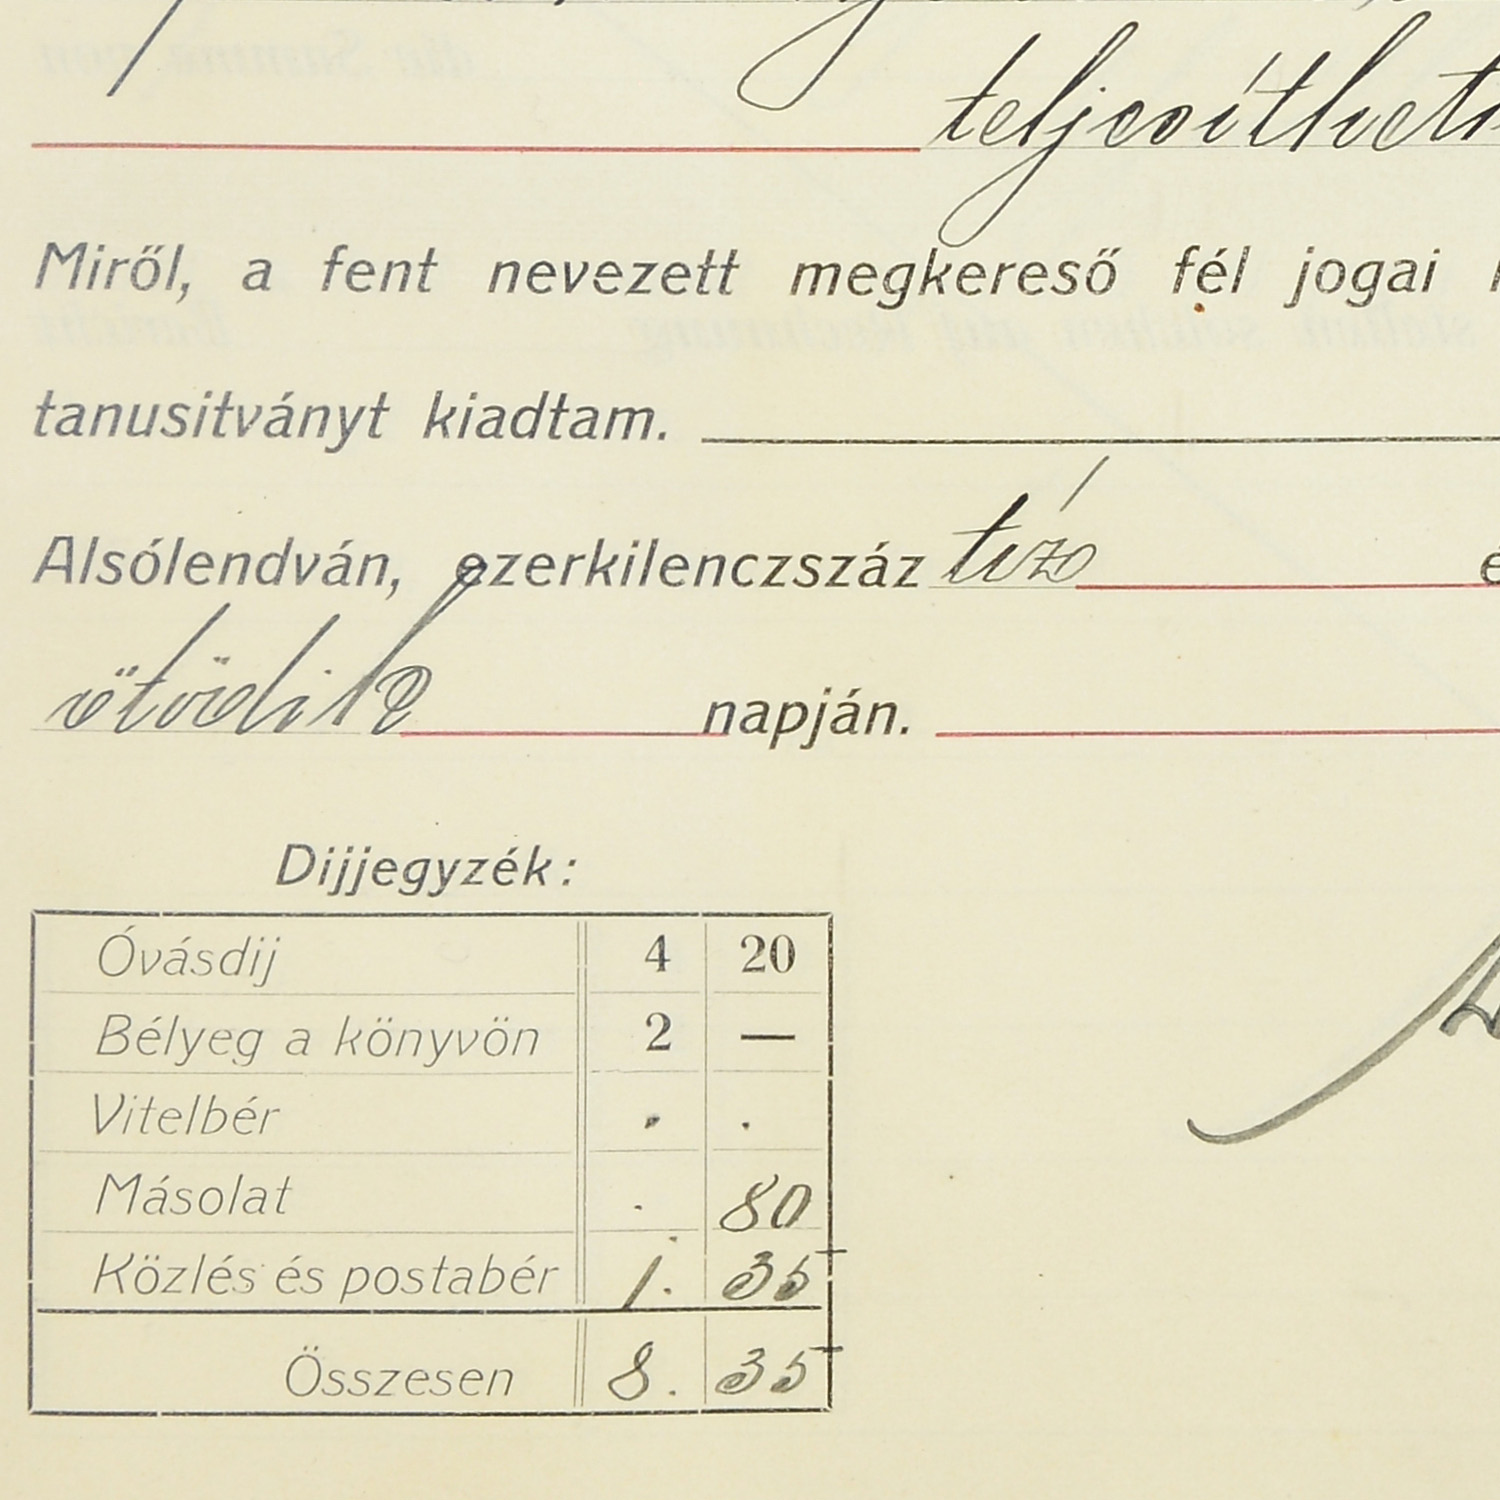 teljesíthető
Miről, a fent nevezett megkereső fél jogai
tanusitványt kiadtam.
Alsólendván, ezerkilenczszáz tíz
ötödik napján.
Dijjegyzék:
Óvásdij 4 20
Bélyeg a könyvön 2 —
Vitelbér . .
Másolat . 80
Közlés és postabér 1. 35
Összesen 8. 35